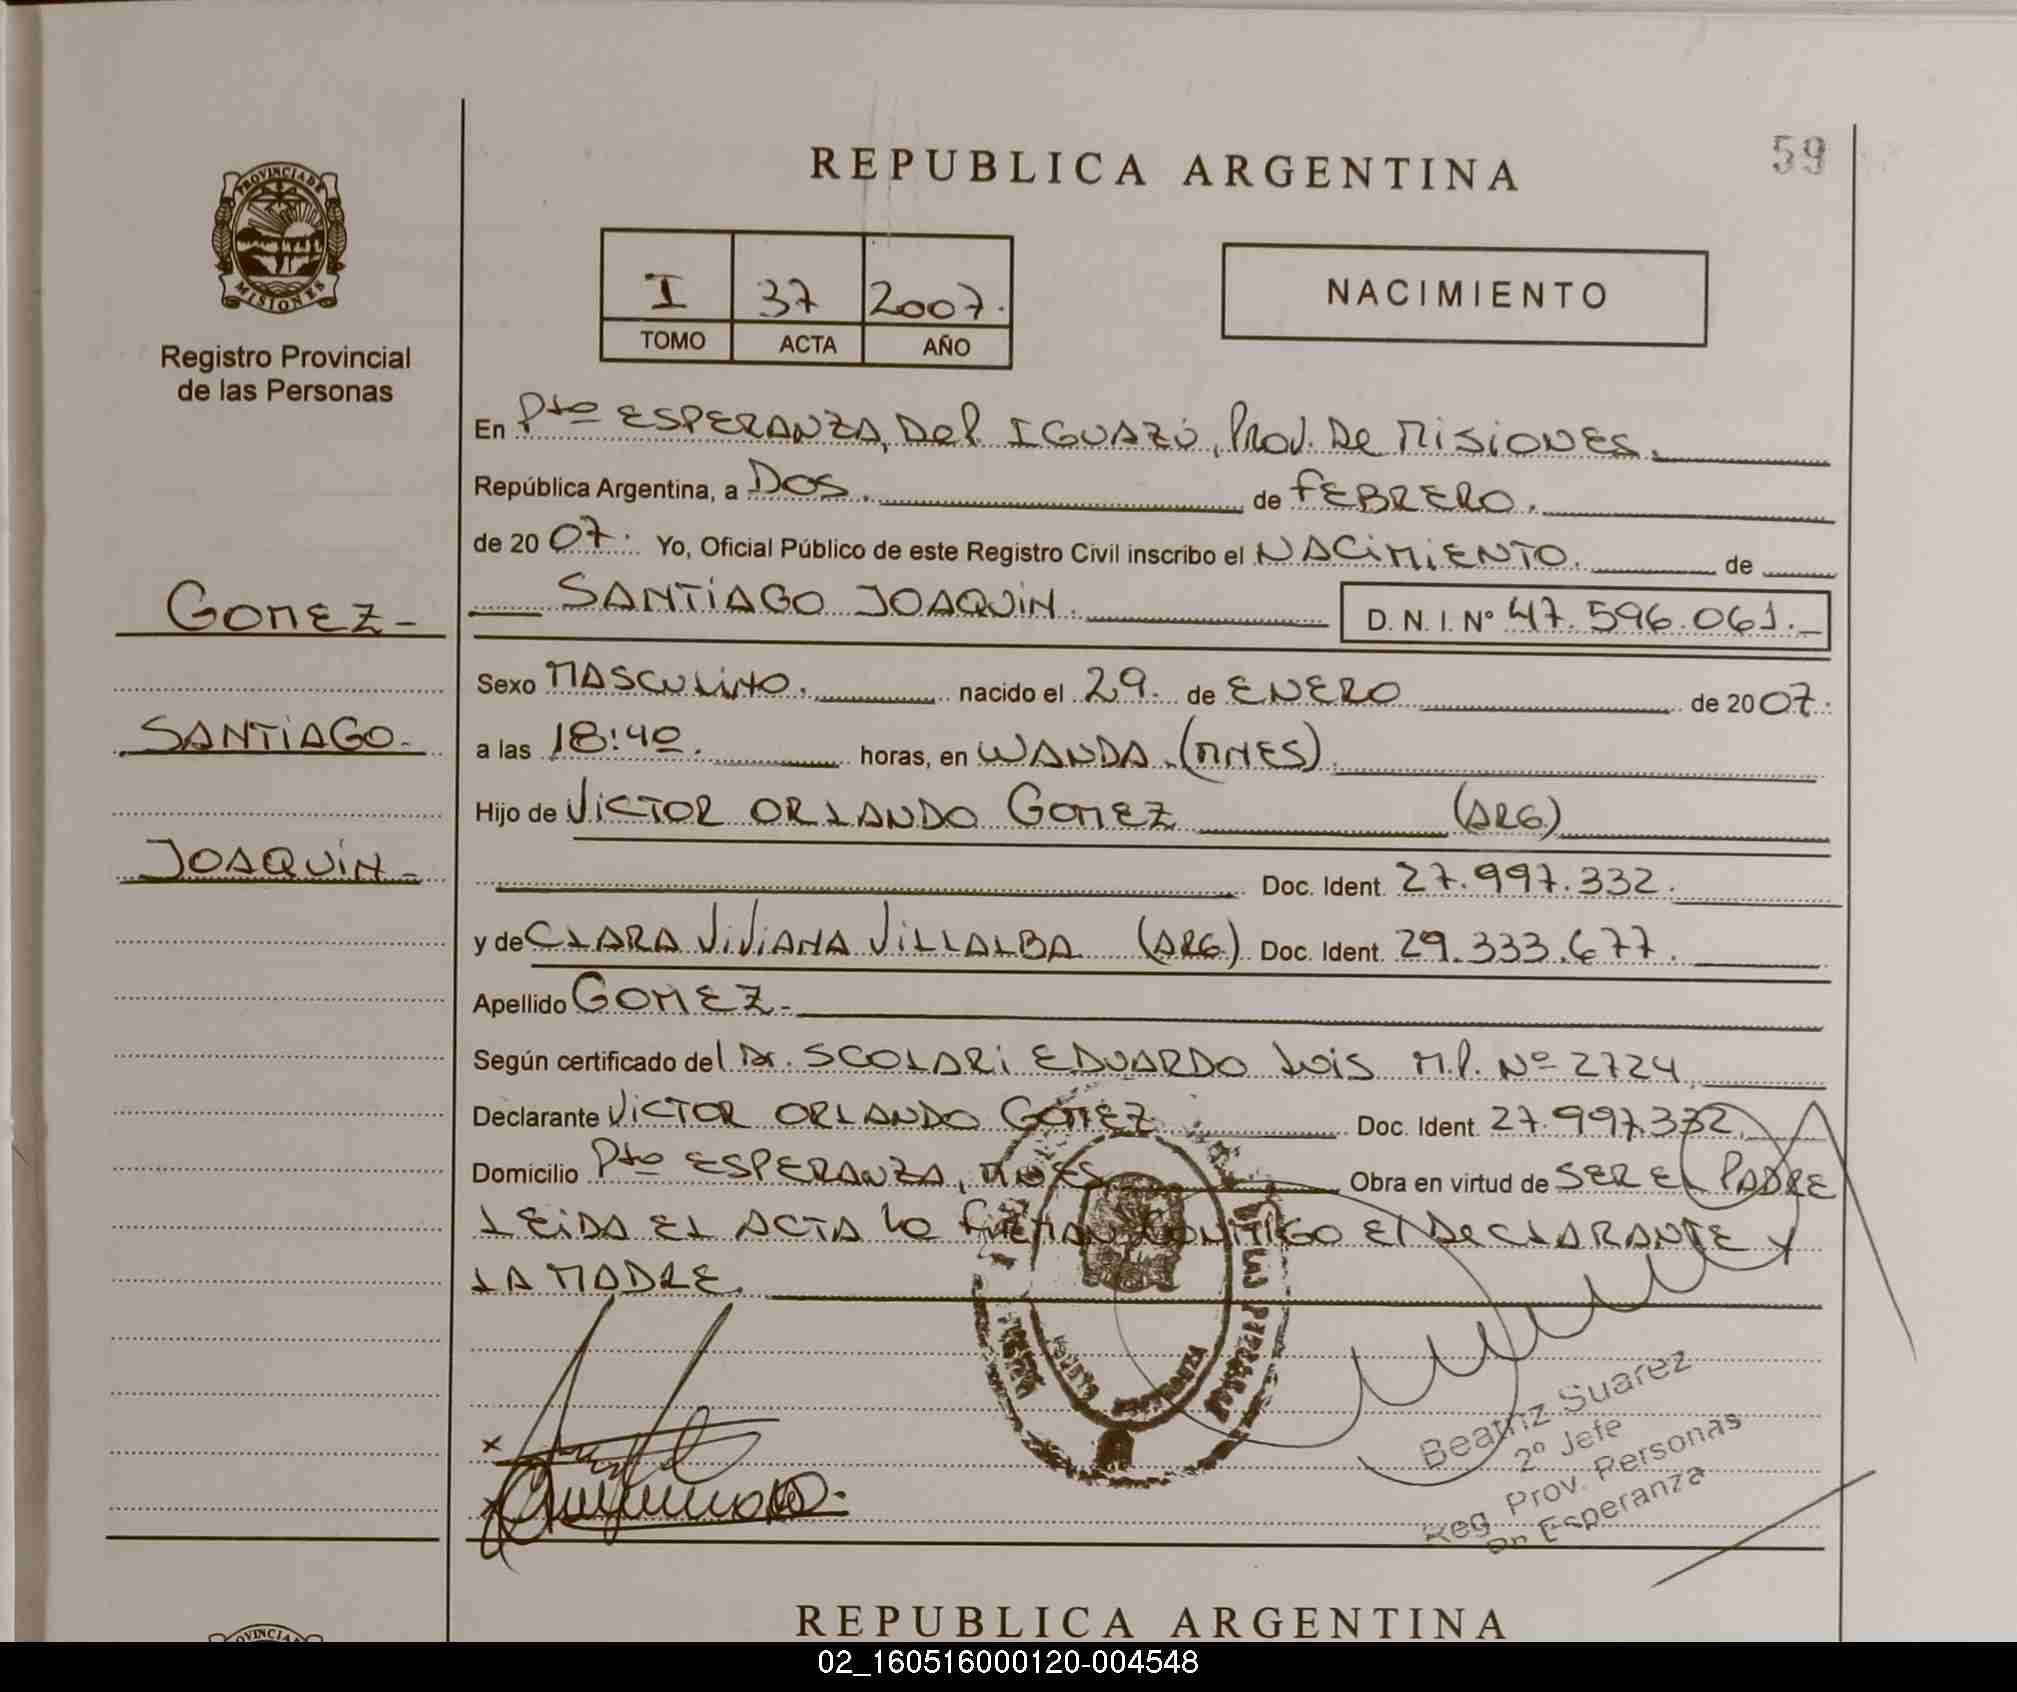 59
REPUBLICA ARGENTINA
PROVINCIA DE
MISIONES
Registro Provincial
de las Personas
I 37 2007.
TOMO ACTA AÑO
NACIMIENTO
En Pto ESPERANZA, Del IGUAZÚ, Prov. De MISIONES.
República Argentina, a DOS. de FEBRERO.
de 2007. Yo, Oficial Público de este Registro Civil inscribo el NACIMIENTO. de
SANTIAGO JOAQUIN. D. N. I. Nº 47.596.061.
GOMEZ-
SANTIAGO-
JOAQUIN-
Sexo MASCULINO. nacido el 29. de ENERO de 2007.
a las 18:40. horas, en WANDA. (MNES).
Hijo de VICTOR ORLANDO GOMEZ (ARG)
Doc. Ident. 27.997.332.
y de CLARA VIVIANA VILLALBA (ARG). Doc. Ident. 29.333.677.
Apellido GOMEZ-
Según certificado del Dr. SCOLARI EDUARDO LUIS M.P. Nº 2724
Declarante VICTOR ORLANDO GOMEZ Doc. Ident. 27.997.332
Domicilio Pto ESPERANZA, MNES Obra en virtud de SER EL PADRE
LEIDA EL ACTA LO FIRMAN CONMIGO EL DECLARANTE Y
LA MADRE.
Beatriz Suarez
2º Jefe
Reg Prov. Personas
Esperanza
REPUBLICA ARGENTINA
02_160516000120-004548